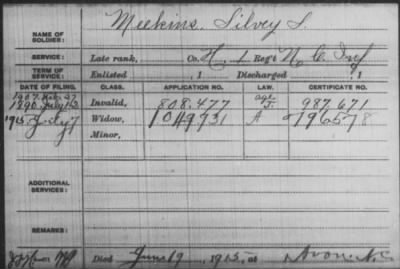 NAME OF SOLDIER: Meekins, Silvey S.
SERVICE: Late rank, Co. H, 1 Reg't N. C. Inf
TERM OF SERVICE: Enlisted , 1 Discharged , 1
DATE OF FILING. CLASS. APPLICATION NO. LAW. CERTIFICATE NO.
1907 Feb. 27 age
1890 July 12 Invalid, 808.477 J. 987.671
1915 July 7 Widow, 1049731 A 796578
Minor,
ADDITIONAL SERVICES:
REMARKS:
Died June 19, 1915, at Avon N.C.